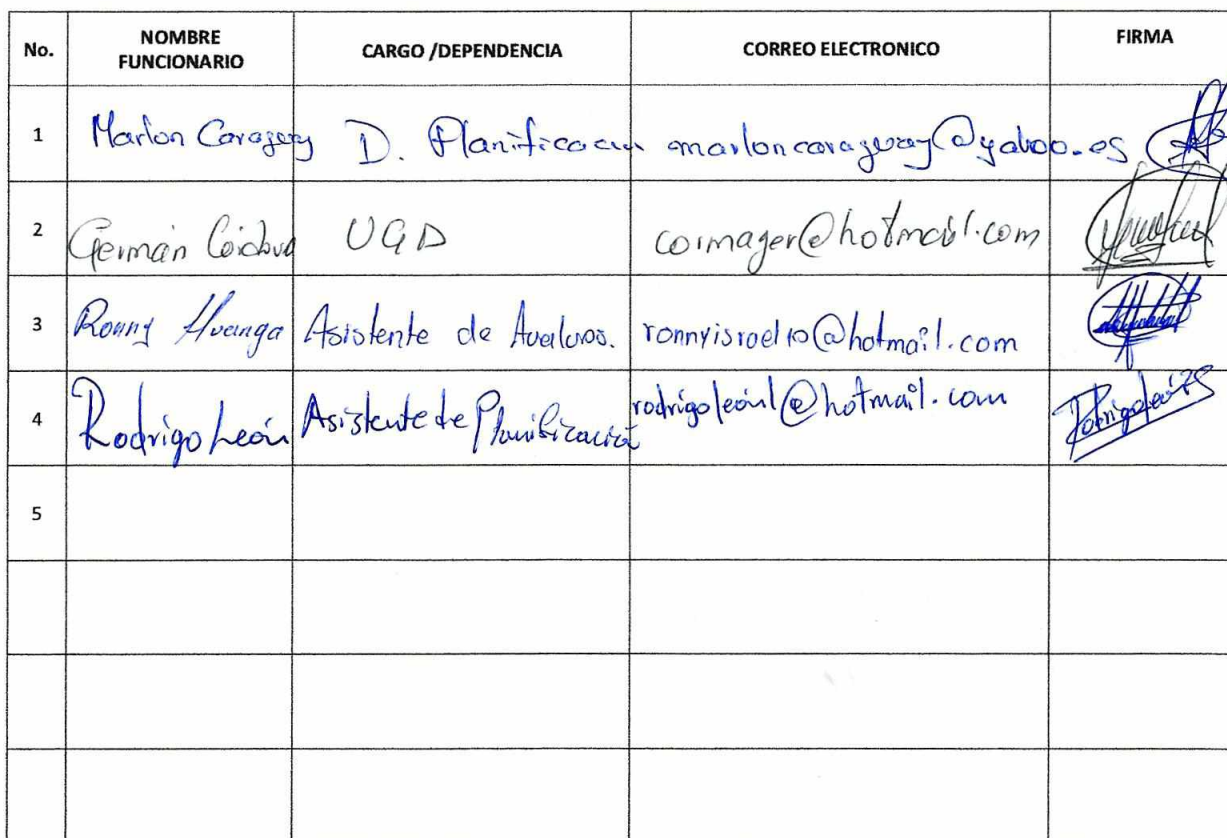 No. NOMBRE FUNCIONARIO CARGO /DEPENDENCIA CORREO ELECTRONICO FIRMA
1 Marlon D. Planificacion marloncaragueay@yahoo.es
2 Germán Córdova UGD cormager@hotmail.com
3 Ronny Huanga Asistente de Avaluos. ronnyisrael10@hotmail.com
4 Rodrigo León Asistente de Planificación rodrigoleonl@hotmail.com Rodrigo León
5